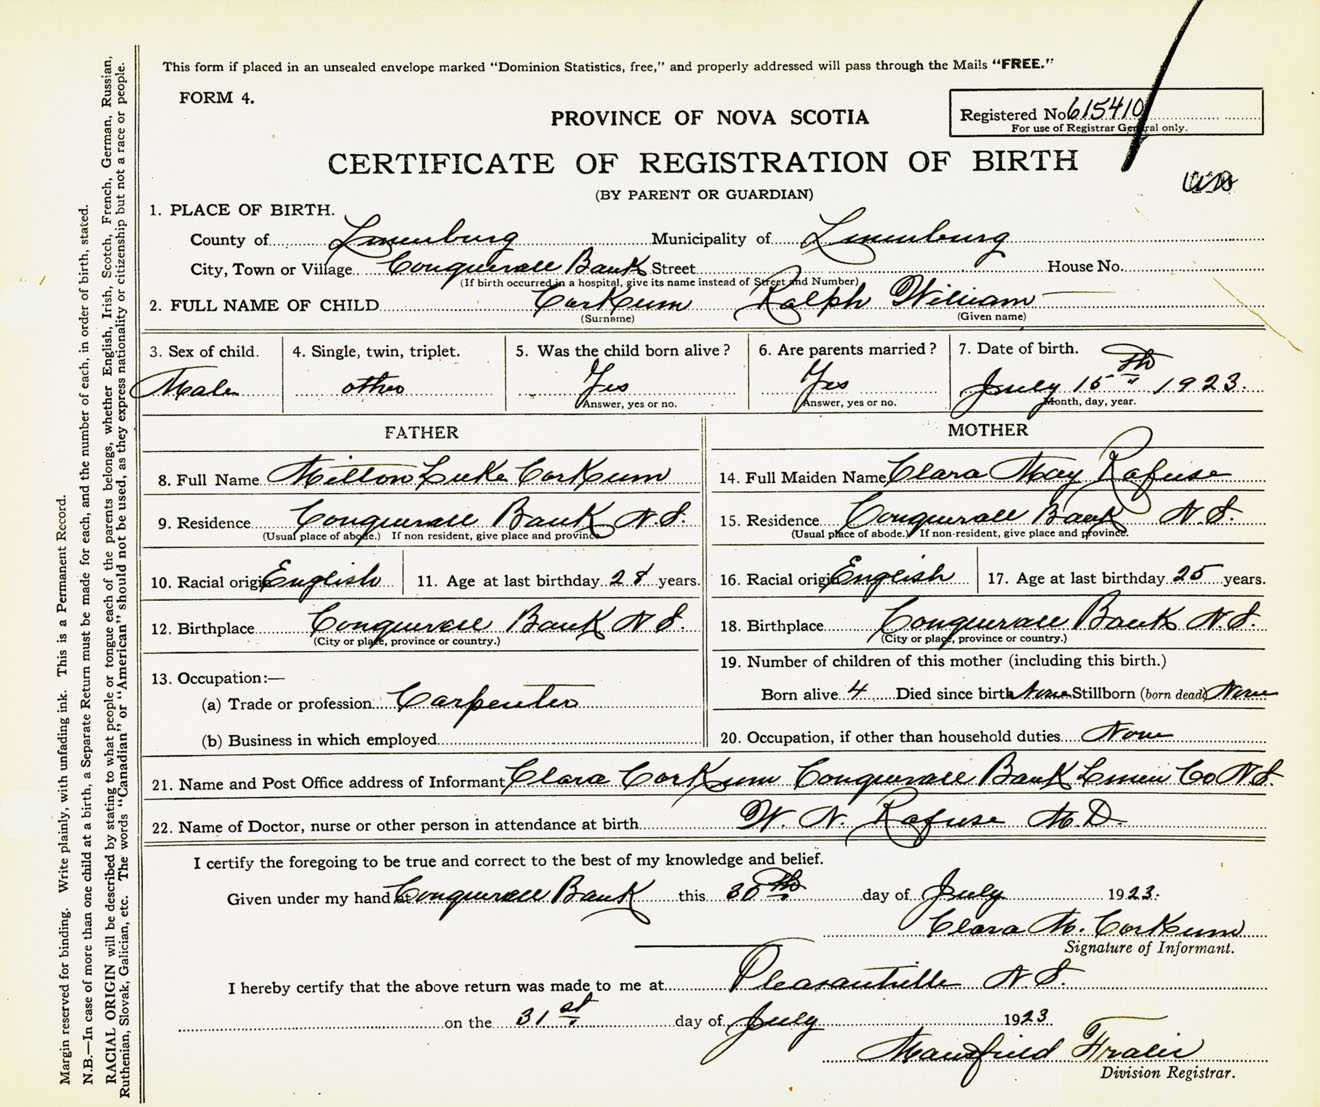 This form if placed in an unsealed envelope marked "Dominion Statistics, free," and properly addressed will pass through the Mails "FREE."
FORM 4.
PROVINCE OF NOVA SCOTIA
Registered No 615410
For use of Registrar General only.
CERTIFICATE OF REGISTRATION OF BIRTH
(BY PARENT OR GUARDIAN)
1. PLACE OF BIRTH.
County of Lunenburg Municipality of Lunenburg
City, Town or Village Conquerall Bank Street House No.
(If birth occurred in a hospital, give its name instead of Street and Number)
2. FULL NAME OF CHILD Corkum Ralph William
(Surname) (Given name)
3. Sex of child. 4. Single, twin, triplet. 5. Was the child born alive? 6. Are parents married? 7. Date of birth.
Male other Yes Yes July 15th 1923.
Answer, yes or no. Answer, yes or no. Month, day, year.
FATHER MOTHER
8. Full Name Milton Luke Corkum 14. Full Maiden Name Clara May Rafuse
9. Residence Conquerall Bank N.S. 15. Residence Conquerall Bank N.S.
(Usual place of abode.) If non resident, give place and province. (Usual place of abode.) If non-resident, give place and province.
10. Racial origin English 11. Age at last birthday 28 years. 16. Racial origin English 17. Age at last birthday 25 years.
12. Birthplace Conquerall Bank N.S. 18. Birthplace Conquerall Bank N.S.
(City or place, province or country.) (City or place, province or country.)
13. Occupation:— 19. Number of children of this mother (including this birth.)
(a) Trade or profession Carpenter Born alive 4 Died since birth None Stillborn (born dead) None
(b) Business in which employed 20. Occupation, if other than household duties None
21. Name and Post Office address of Informant Clara Corkum Conquerall Bank Lunen Co N.S.
22. Name of Doctor, nurse or other person in attendance at birth W. N. Rafuse M.D.
I certify the foregoing to be true and correct to the best of my knowledge and belief.
Given under my hand at Conquerall Bank this 30th day of July 1923.
Clara M. Corkum
Signature of Informant.
I hereby certify that the above return was made to me at Pleasantville N.S.
on the 31st day of July 1923
Mansfield
Division Registrar.
Margin reserved for binding. Write plainly, with unfading ink. This is a Permanent Record.
N.B.—In case of more than one child at a birth, a Separate Return must be made for each, and the number of each, in order of birth, stated.
RACIAL ORIGIN will be described by stating to what people or tongue each of the parents belongs, whether English, Irish, Scotch, French, German, Russian,
Ruthenian, Slovak, Galician, etc. The words "Canadian" or "American" should not be used, as they express nationality or citizenship but not a race or people.